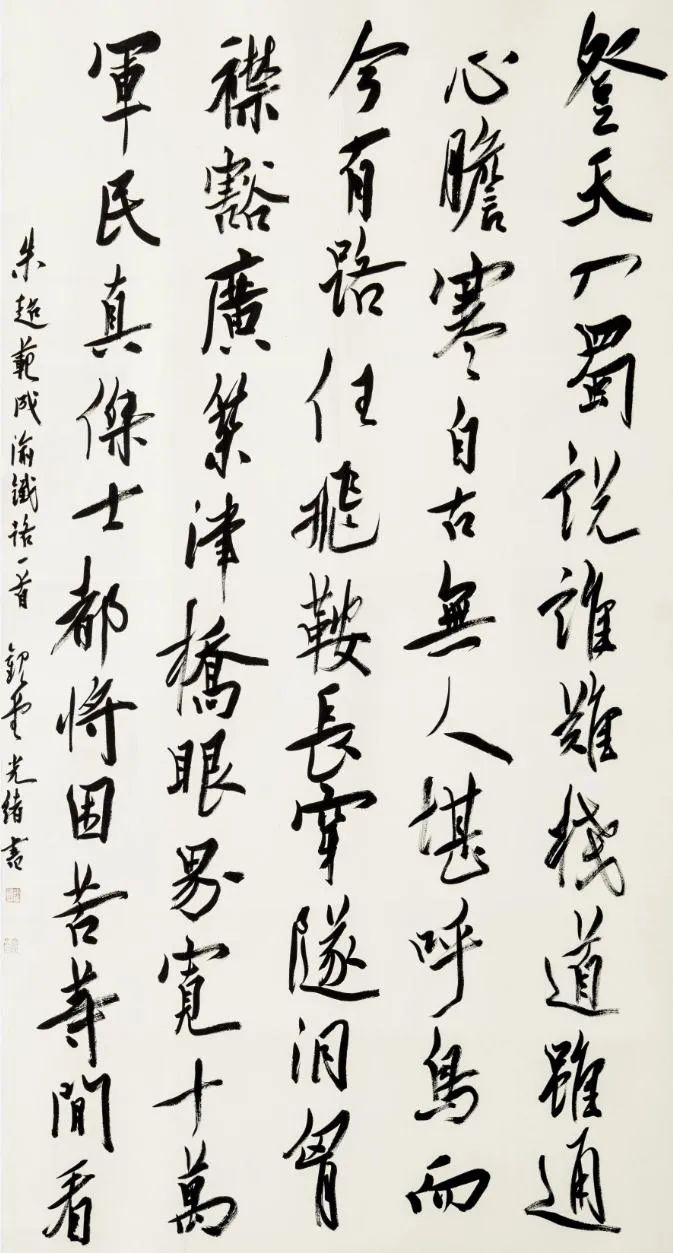 登天入蜀說誰難棧道雖通
心膽寒自古無人堪呼鳥而
今有路任飛鞍長穿隧洞胷
襟豁廣築津橋眼界寬十萬
軍民真傑士都將困苦等閒看
朱超範成渝鐵路一首 光緒書